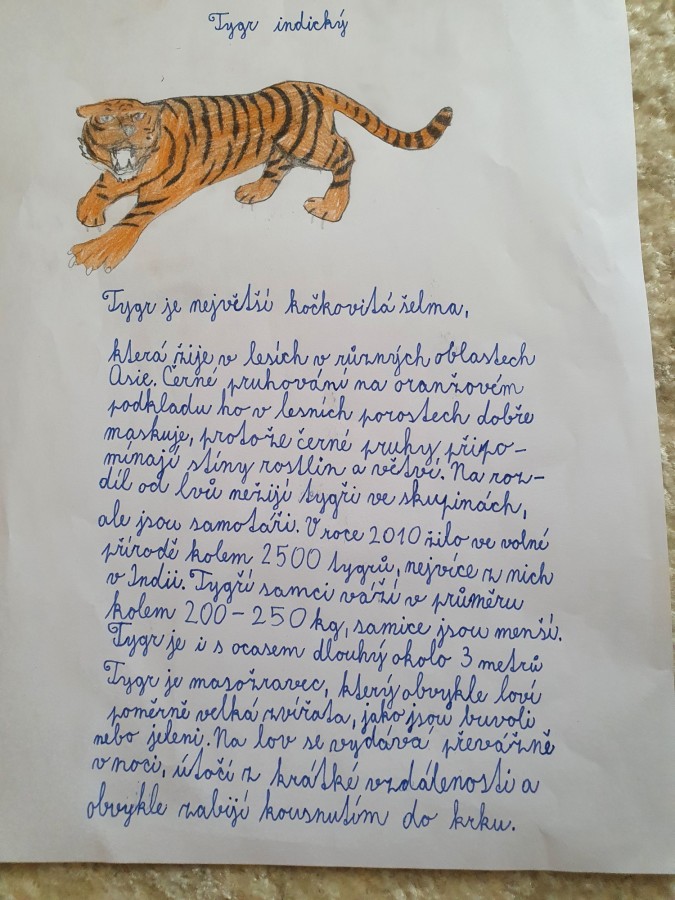 Tygr indický
Tygr je největší kočkovitá šelma,
která žije v lesích v různých oblastech
Asie. Černé pruhování na oranžovém
podkladu ho v lesních porostech dobře
maskuje, protože černé pruhy připo-
mínají stíny rostlin a větví. Na roz-
díl od lvů nežijí tygři ve skupinách,
ale jsou samotáři. V roce 2010 žilo ve volné
přírodě kolem 2500 tygrů, nejvíce z nich
v Indii. Tygří samci váží v průměru
kolem 200-250 kg, samice jsou menší.
Tygr je i s ocasem dlouhý okolo 3 metrů
Tygr je masožravec, který obvykle loví
poměrně velká zvířata, jako jsou buvoli
nebo jeleni. Na lov se vydává převážně
v noci, útočí z krátké vzdálenosti a
obvykle zabíjí kousnutím do krku.